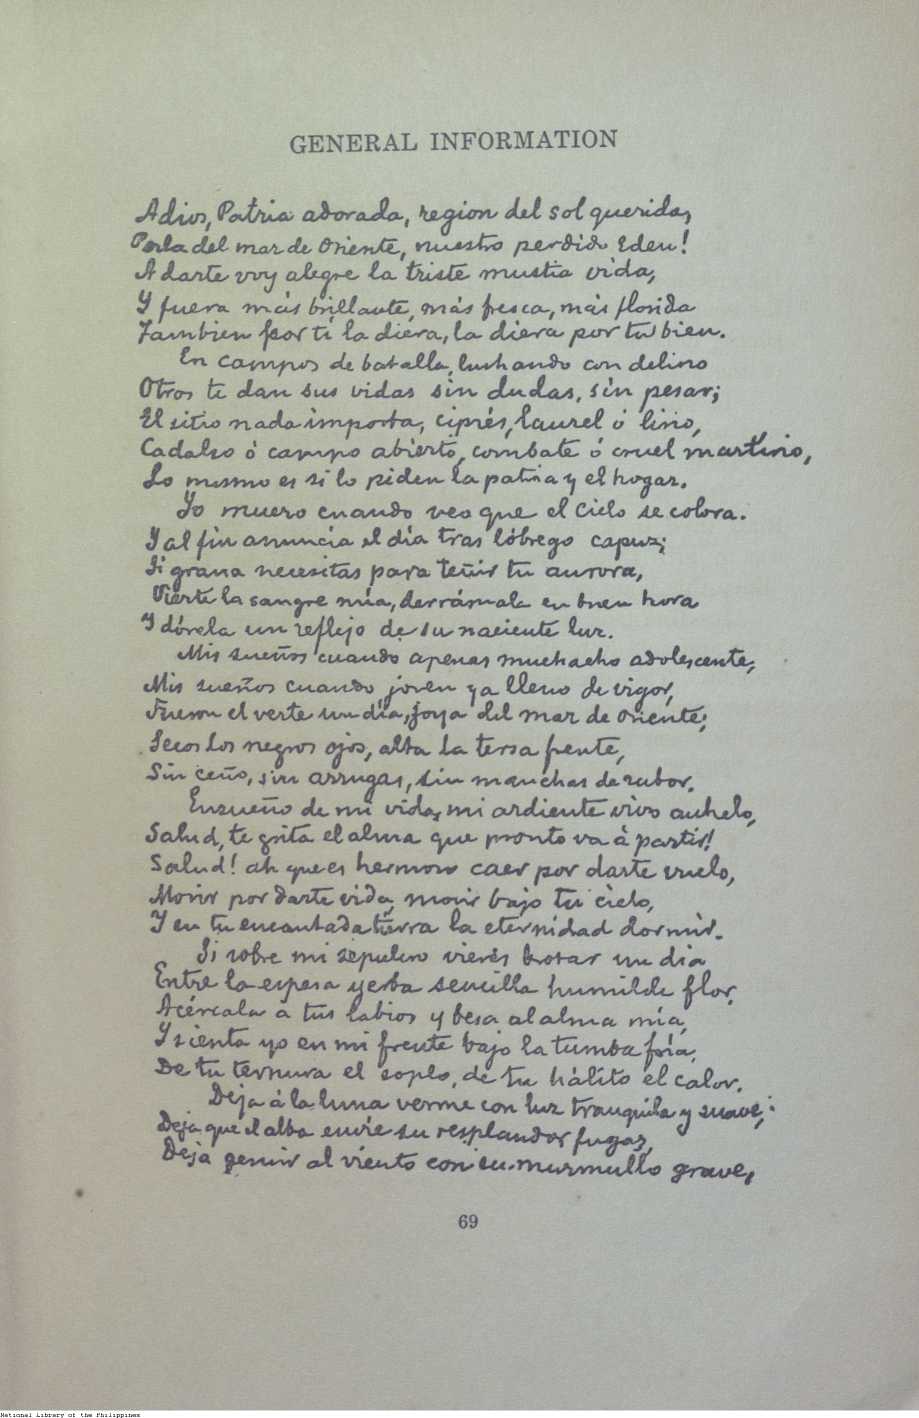 GENERAL INFORMATION
Adios, Patria adorada, region del sol querida,
Perla del mar de Oriente, nuestro perdido Eden!
A darte voy alegre la triste mustia vida,
Y fuera más brillante, más fresca, más florida
Tambien por tí la diera, la diera por tu bien.
En campos de batalla, luchando con delirio
Otros te dan sus vidas sin dudas, sin pesar;
El sitio nada importa, ciprés, laurel ó lirio,
Cadalso ó campo abierto, combate ó cruel martirio,
Lo mismo es si lo piden la patria y el hogar.
Yo muero cuando veo que el cielo se colora.
Y al fin anuncia el día tras lóbrego capuz;
Si grana necesitas para teñir tu aurora,
Vierte la sangre mía, derrámala en buen hora
Y dórela un reflejo de su naciente luz.
Mis sueños cuando apenas muchacho adolescente,
Mis sueños cuando joven ya lleno de vigor,
Fueron el verte un día, joya del mar de Oriente,
Secos los negros ojos, alta la tersa frente,
Sin ceño, sin arrugas, sin manchas de rubor.
Ensueño de mi vida, mi ardiente vivo anhelo,
Salud, te grita el alma que pronto va á partir!
Salud! ah que es hermoso caer por darte vuelo,
Morir por darte vida, morir bajo tu cielo,
Y en tu encantada tierra la eternidad dormir.
Si sobre mi sepulcro vieres brotar un dia
Entre la espesa yerba sencilla humilde flor,
Acércala a tus labios y besa al alma mía,
Y sienta yo en mi frente bajo la tumba fría,
De tu ternura el soplo, de tu hálito el calor.
Deja á la luna verme con luz tranquila y suave;
Deja que el alba envíe su resplandor fugaz,
Deja gemir al viento con su murmullo grave,
69
National Library of the Philippines